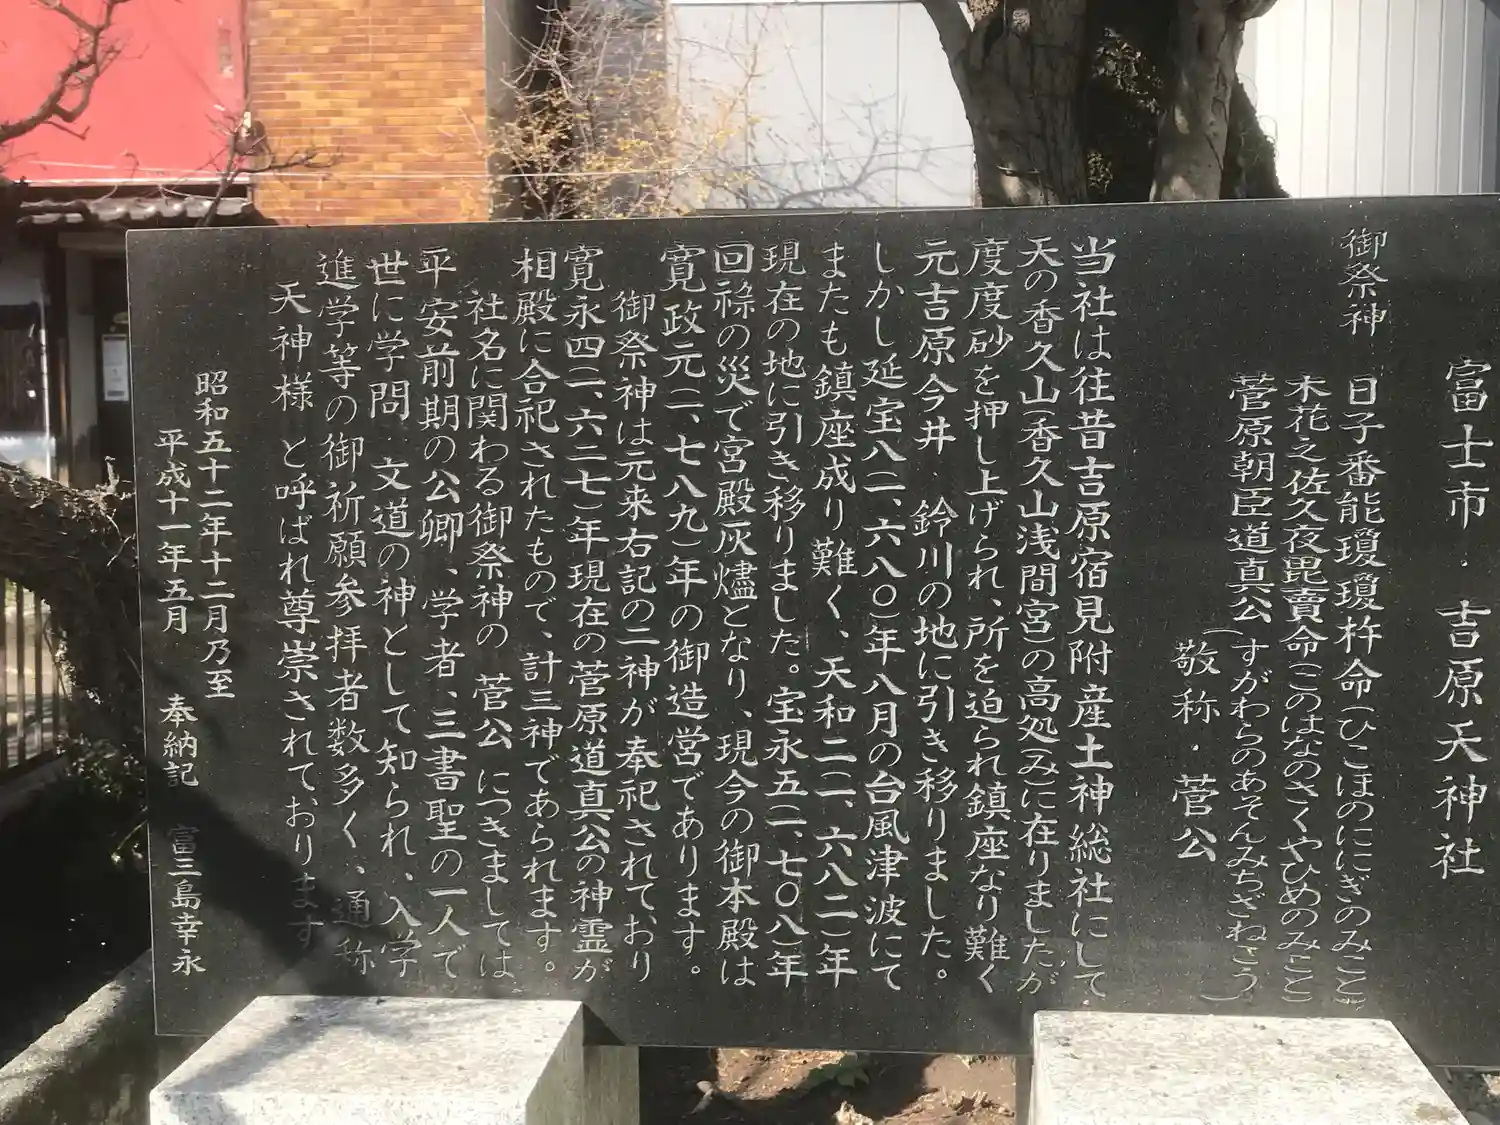 富士市・吉原天神社
御祭神 日子番能瓊瓊杵命(ひこほのににぎのみこと)
木花之佐久夜毘賣命(このはなのさくやひめのみこと)
菅原朝臣道真公(すがわらのあそんみちざねこう)
(敬称・菅公)
当社は往昔吉原宿見附産土神総社にして
天の香久山(香久山浅間宮)の高処(み)に在りましたが
度度砂を押し上げられ、所を迫られ鎮座なり難く
元吉原今井・鈴川の地に引き移りました。
しかし延宝八(一、六八〇)年八月の台風津波にて
またも鎮座成り難く、天和二(一、六八二)年
現在の地に引き移りました。宝永五(一、七〇八)年
回祿の災で宮殿灰燼となり、現今の御本殿は
寛政元(一、七八九)年の御造営であります。
御祭神は元来右記の二神が奉祀されており
寛永四(一、六二七)年現在の菅原道真公の神霊が
相殿に合祀されたもので、計三神であられます。
社名に関わる御祭神の 菅公 につきましては
平安前期の公卿、学者、三書聖の一人で
世に学問・文道の神として知られ、入学
進学等の御祈願参拝者数多く、通称
天神様 と呼ばれ尊崇されております
昭和五十二年十二月乃至
平成十一年五月 奉納記 富三島幸永